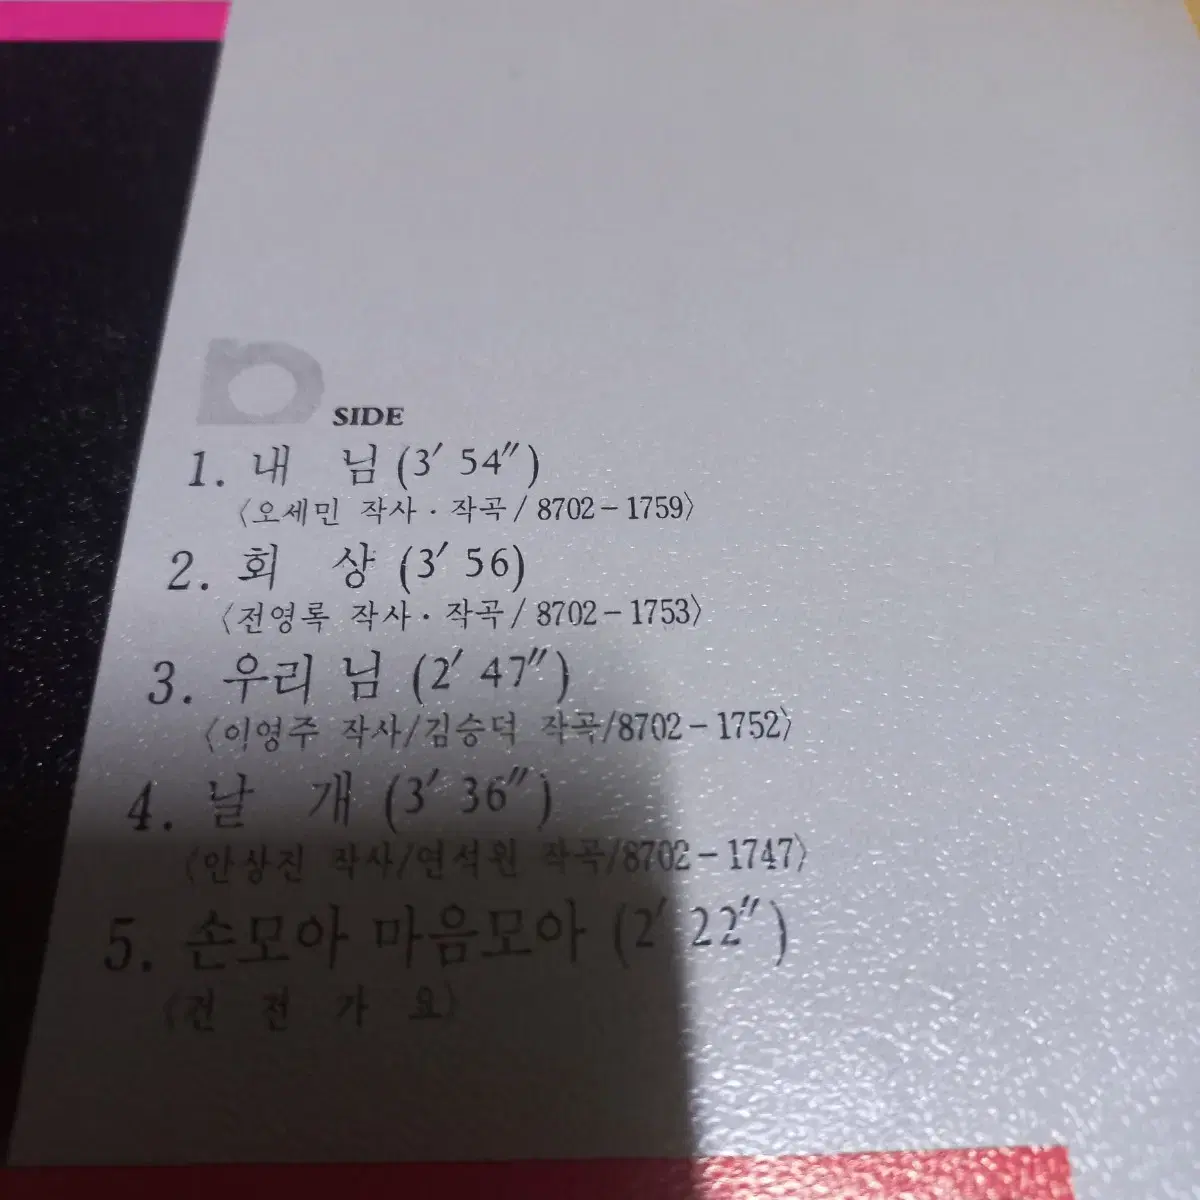 D SIDE
1. 내 님 (3′ 54″)
〈오세민 작사·작곡/8702-1759〉
2. 회 상 (3′ 56)
〈전영록 작사·작곡/8702-1753〉
3. 우리 님 (2′ 47″)
〈이영주 작사/김승덕 작곡/8702-1752〉
4. 날 개 (3′ 36″)
〈안상진 작사/연석원 작곡/8702-1747〉
5. 손모아 마음모아 (2′ 22″)
〈건 전 가 요〉